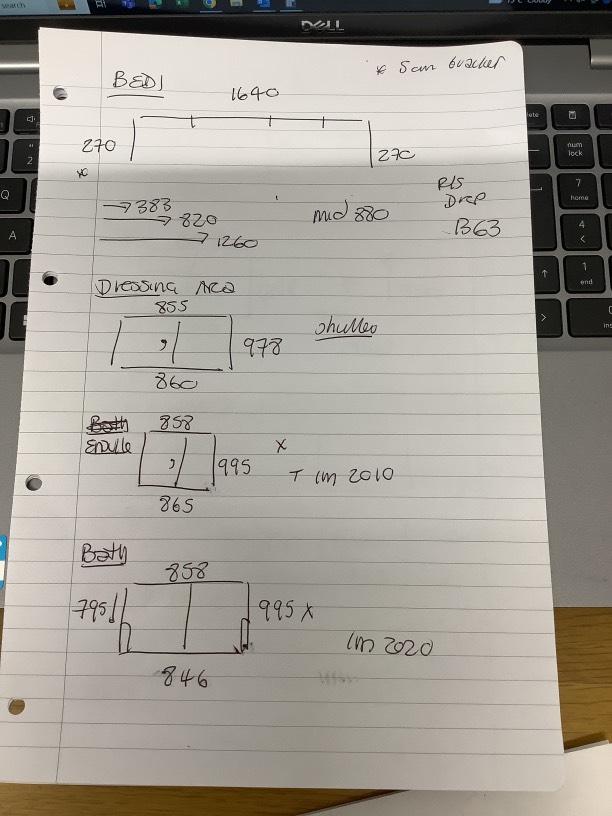 search
DELL
* 5cm bracker
BED1
1640
270
270
383
820
1260
mid 880
R/S
Drop
B63
Dressing Area
855
978
860
shutter
Both
858
995
x
T IM 2010
865
Both
858
795
995 x
IM 2020
846
num
lock
7
home
4
1
end
Q
A
2